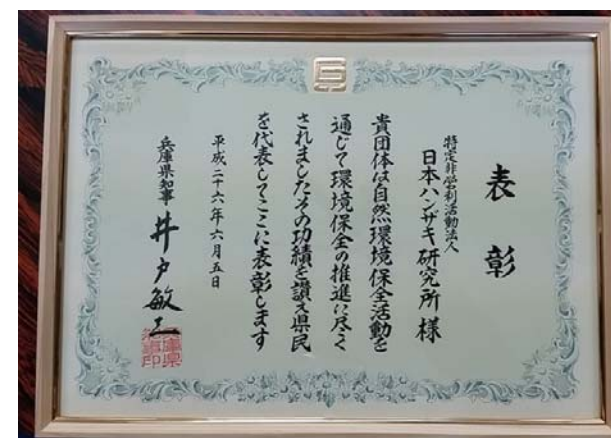 表彰
特定非営利活動法人
日本ハンザキ研究所 様
貴団体は自然環境保全活動を
通じて環境保全の推進に尽く
されましたその功績を讃え県民
を代表してここに表彰します
平成二十六年六月五日
兵庫県知事 井戸敏三
兵庫県
知事印